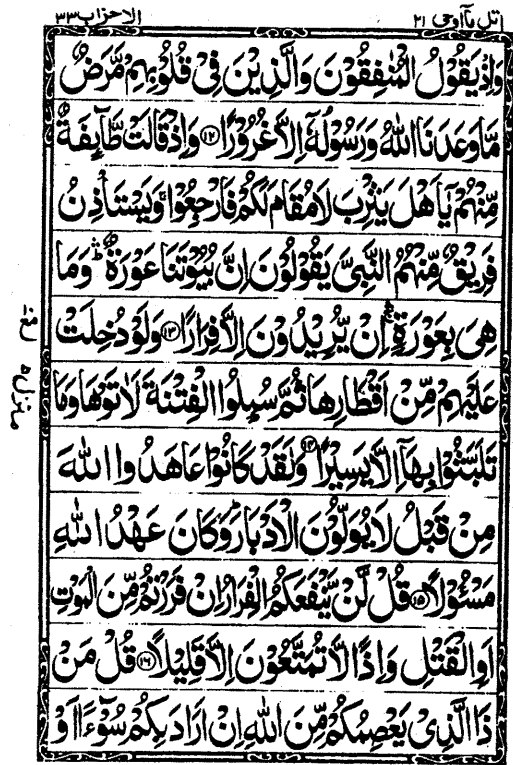 اتل مآاوحی ۲۱
الاحزاب ۳۳
وَاِذْ يَقُوْلُ الْمُنٰفِقُوْنَ وَالَّذِيْنَ فِىْ قُلُوْبِهِمْ مَّرَضٌ
مَّا وَعَدَنَا اللّٰهُ وَرَسُوْلُهٗٓ اِلَّا غُرُوْرًا ﴿۱۲﴾ وَاِذْ قَالَتْ طَّآئِفَةٌ
مِّنْهُمْ يٰٓاَهْلَ يَثْرِبَ لَا مُقَامَ لَكُمْ فَارْجِعُوْا ۚ وَيَسْتَاْذِنُ
فَرِيْقٌ مِّنْهُمُ النَّبِىَّ يَقُوْلُوْنَ اِنَّ بُيُوْتَنَا عَوْرَةٌ ۛؕ وَمَا
هِىَ بِعَوْرَةٍ ۛۚ اِنْ يُّرِيْدُوْنَ اِلَّا فِرَارًا ﴿۱۳﴾ وَلَوْ دُخِلَتْ
عَلَيْهِمْ مِّنْ اَقْطَارِهَا ثُمَّ سُئِلُوا الْفِتْنَةَ لَاٰتَوْهَا وَمَا
تَلَبَّثُوْا بِهَآ اِلَّا يَسِيْرًا ﴿۱۴﴾ وَلَقَدْ كَانُوْا عَاهَدُوا اللّٰهَ
مِنْ قَبْلُ لَا يُوَلُّوْنَ الْاَدْبَارَ ؕ وَكَانَ عَهْدُ اللّٰهِ
مَسْئُوْلًا ﴿۱۵﴾ قُلْ لَّنْ يَّنْفَعَكُمُ الْفِرَارُ اِنْ فَرَرْتُمْ مِّنَ الْمَوْتِ
اَوِ الْقَتْلِ وَاِذًا لَّا تُمَتَّعُوْنَ اِلَّا قَلِيْلًا ﴿۱۶﴾ قُلْ مَنْ
ذَا الَّذِىْ يَعْصِمُكُمْ مِّنَ اللّٰهِ اِنْ اَرَادَ بِكُمْ سُوْٓءًا اَوْ
منزل ۵